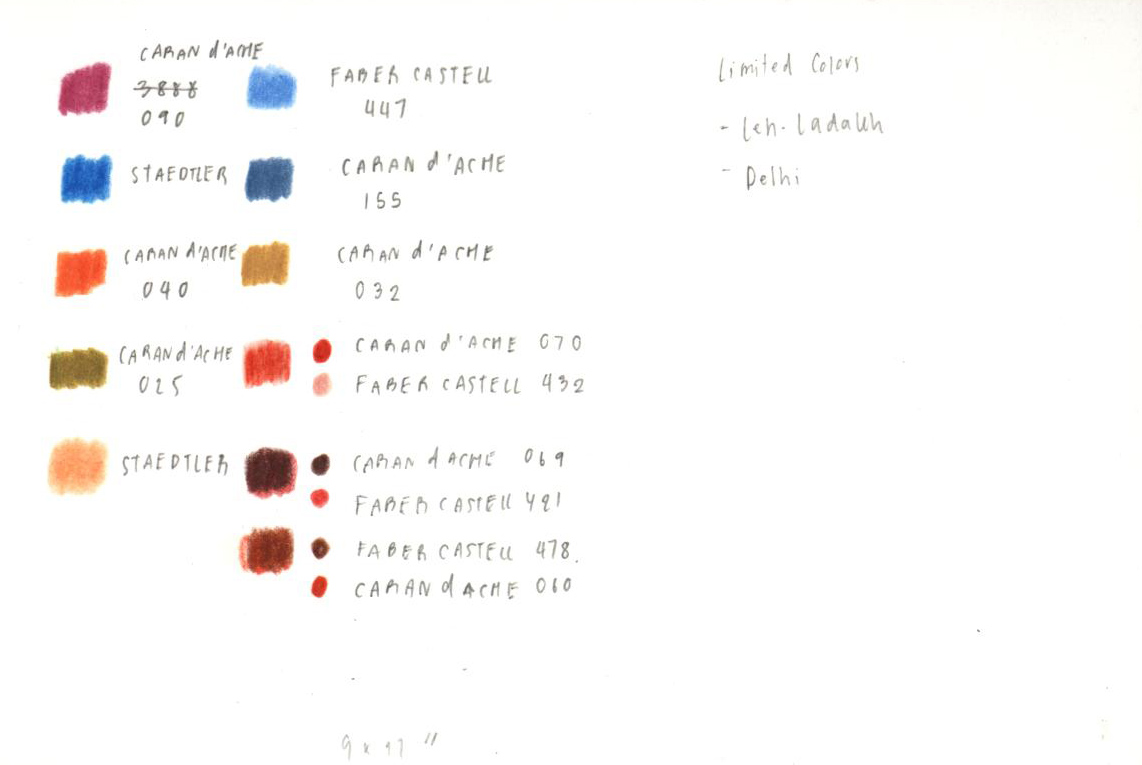 CARAN d'ACHE
3888
090
FABER CASTELL
447
STAEDTLER
CARAN d'ACHE
155
CARAN d'ACHE
040
CARAN d'ACHE
032
CARAN d'ACHE
025
CARAN d'ACHE 070
FABER CASTELL 432
STAEDTLER
CARAN d ACHE 069
FABER CASTELL 421
FABER CASTELL 478.
CARAN d ACHE 060
Limited Colors
- Leh-Ladakh
- Delhi